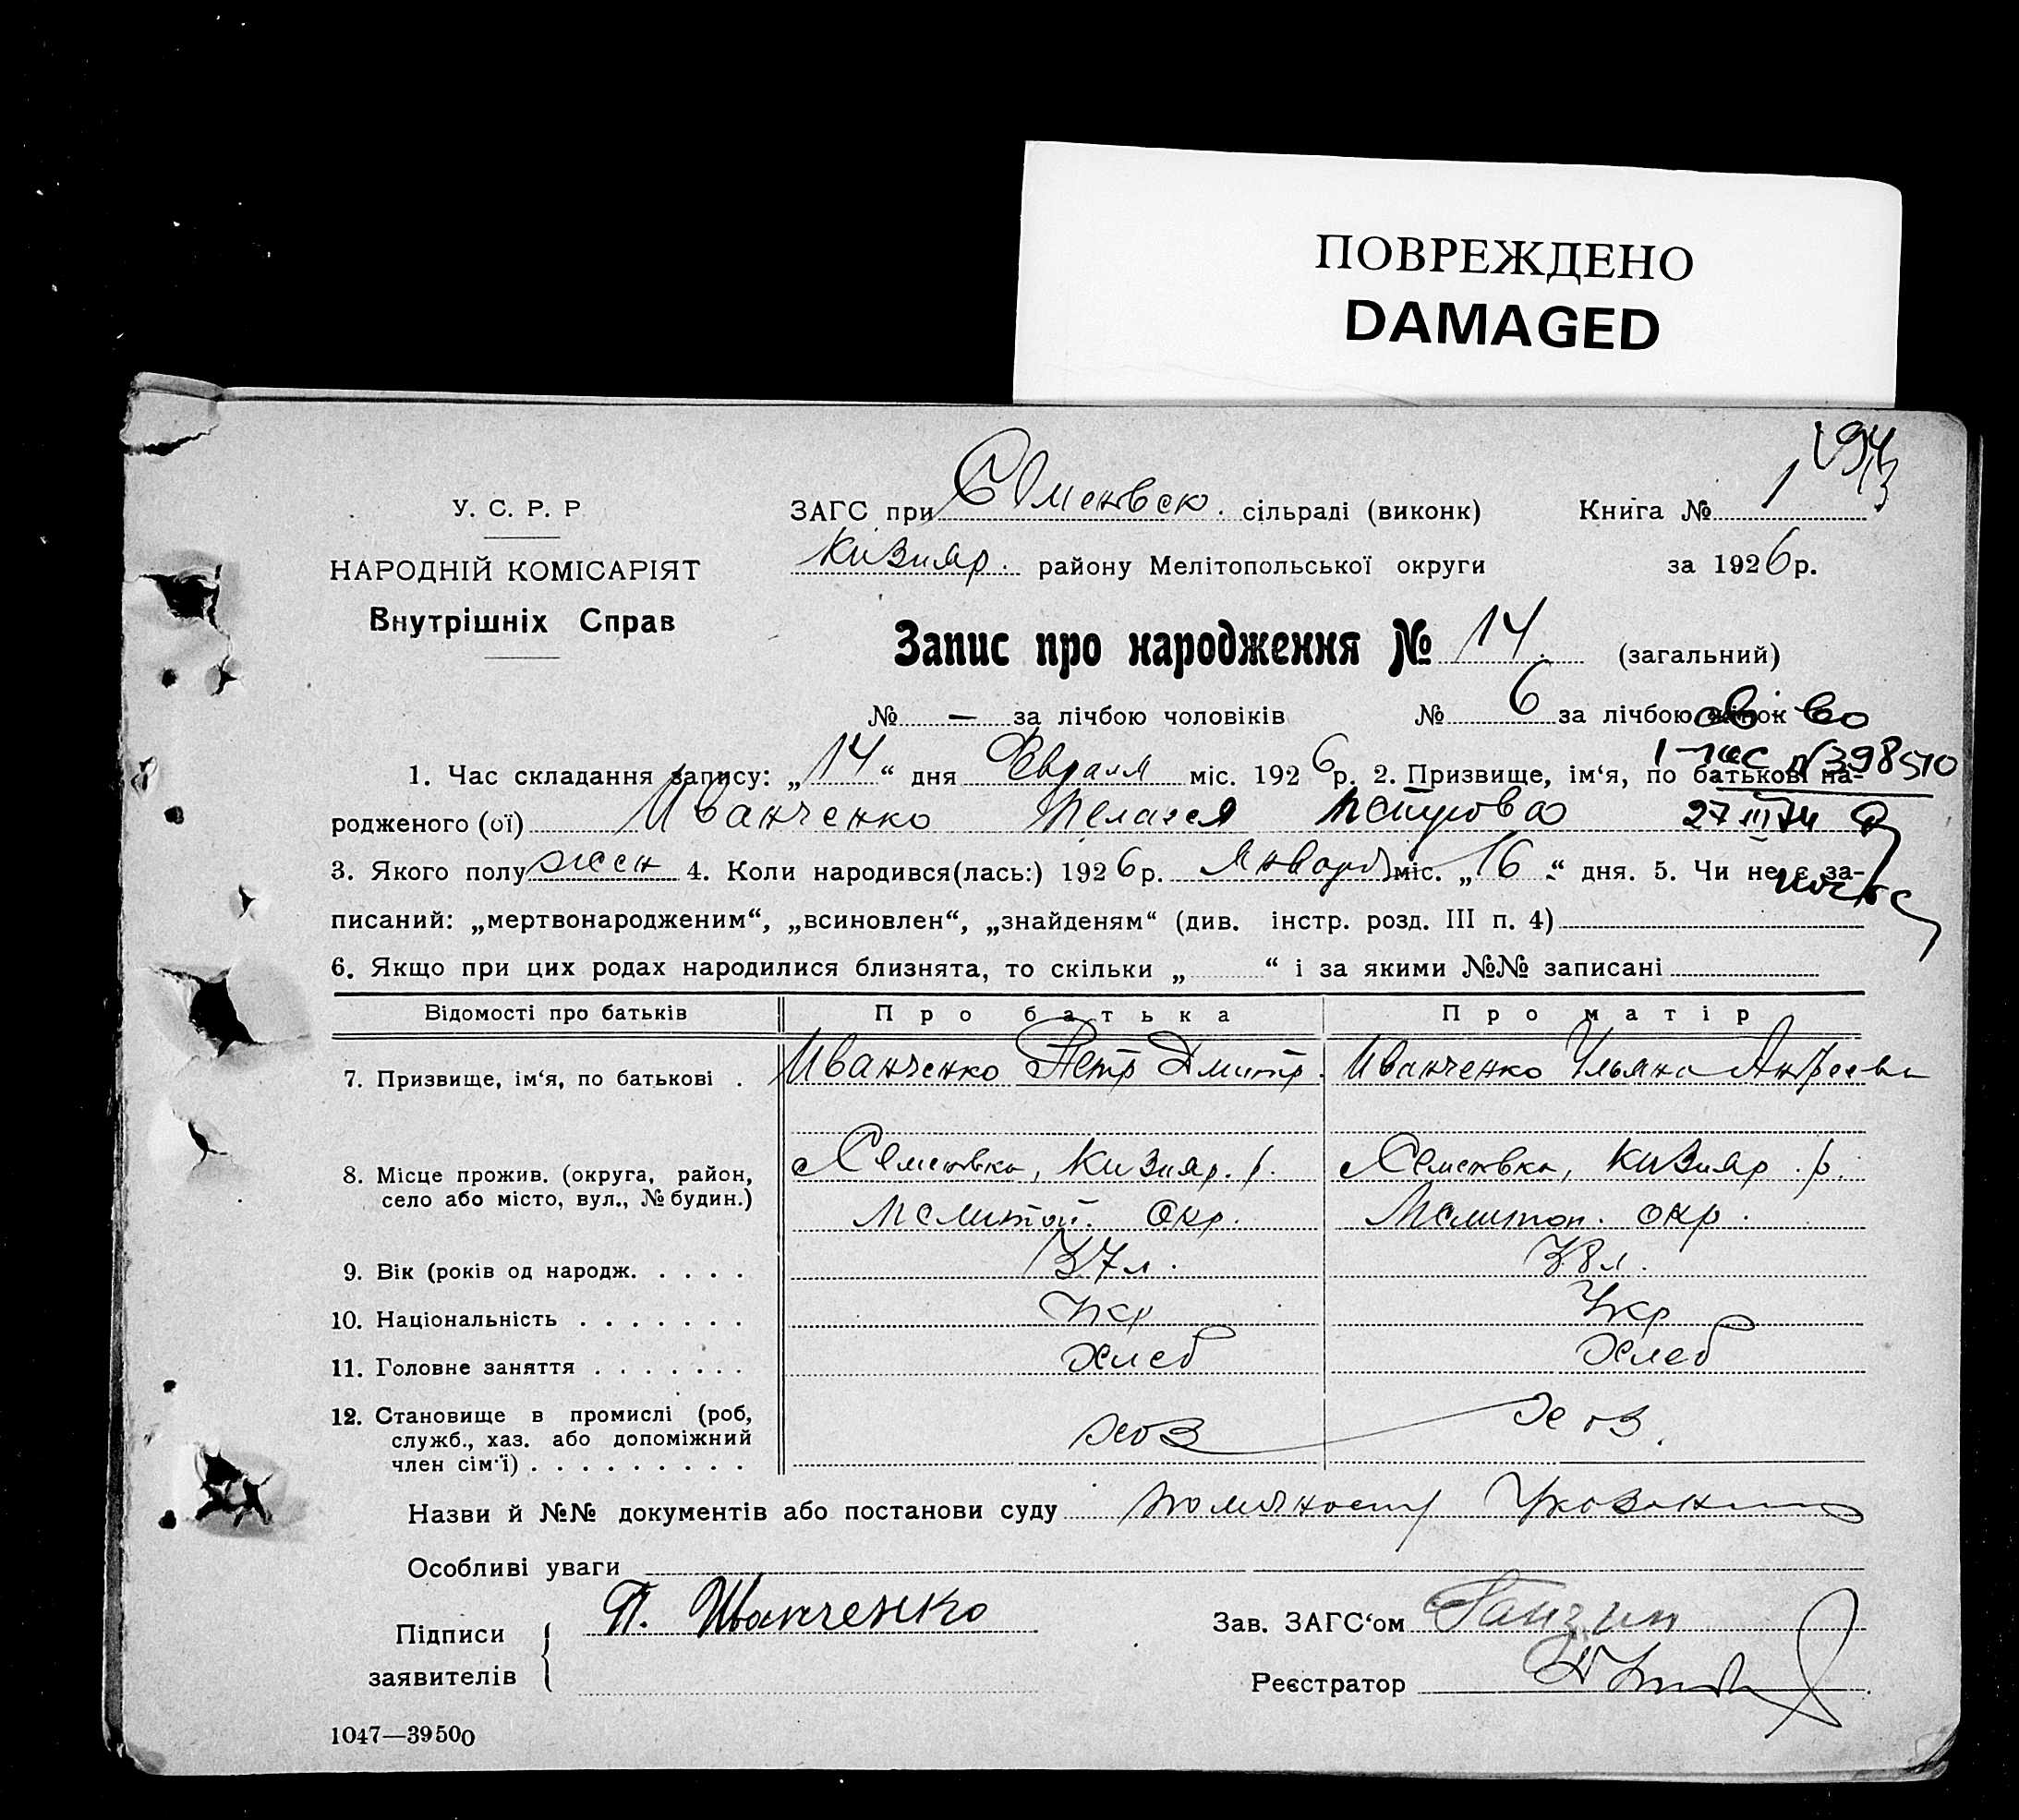 ПОВРЕЖДЕНО
DAMAGED
У. С. Р. Р
НАРОДНІЙ КОМІСАРІЯТ
Внутрішніх Справ
ЗАГС при Семенвск. сільраді (виконк) Книга № 1
Кизияр. району Мелітопольської округи за 1926 р.
Запис про народження № 14. (загальний)
№ — за лічбою чоловіків № 6 за лічбою жінок
1. Час складання запису: „14“ дня Евраля міс. 1926 р. 2. Призвище, ім‘я, по батькові на-
I-ЖС №398510
родженого (ої) Иванченко Пелагея Петровa
27 III 74
3. Якого полу жен 4. Коли народився(лась:) 1926 р. Января міс. „16“ дня. 5. Чи не є за-
писаний: „мертвонародженим“, „всиновлен“, „знайденям“ (див. інстр. розд. III п. 4)
6. Якщо при цих родах народилися близнята, то скільки „ “ і за якими №№ записані
Відомості про батьків Про батька Про матір
7. Призвище, ім‘я, по батькові . Иванченко Петр Дмитр. Иванченко Ульяна Андреевн
8. Місце прожив. (округа, район, Семеновка, Кизияр. р. Семеновка, Кизияр. р.
село або місто, вул., № будин.) Мелитоп. Окр. Мелитоп. окр.
9. Вік (років од народж. . . . . 37 л. 38 л.
10. Національність . . . . . . . Укр Укр
11. Головне заняття . . . . . . . Хлеб Хлеб
12. Становище в промислі (роб,
служб., хаз. або допоміжний хоз хоз.
член сім‘ї) . . . . . . . . .
Назви й №№ документів або постанови суду
Особливі уваги
Підписи П. Иванченко Зав. ЗАГС‘ом
заявителів Реєстратор
1047—39500